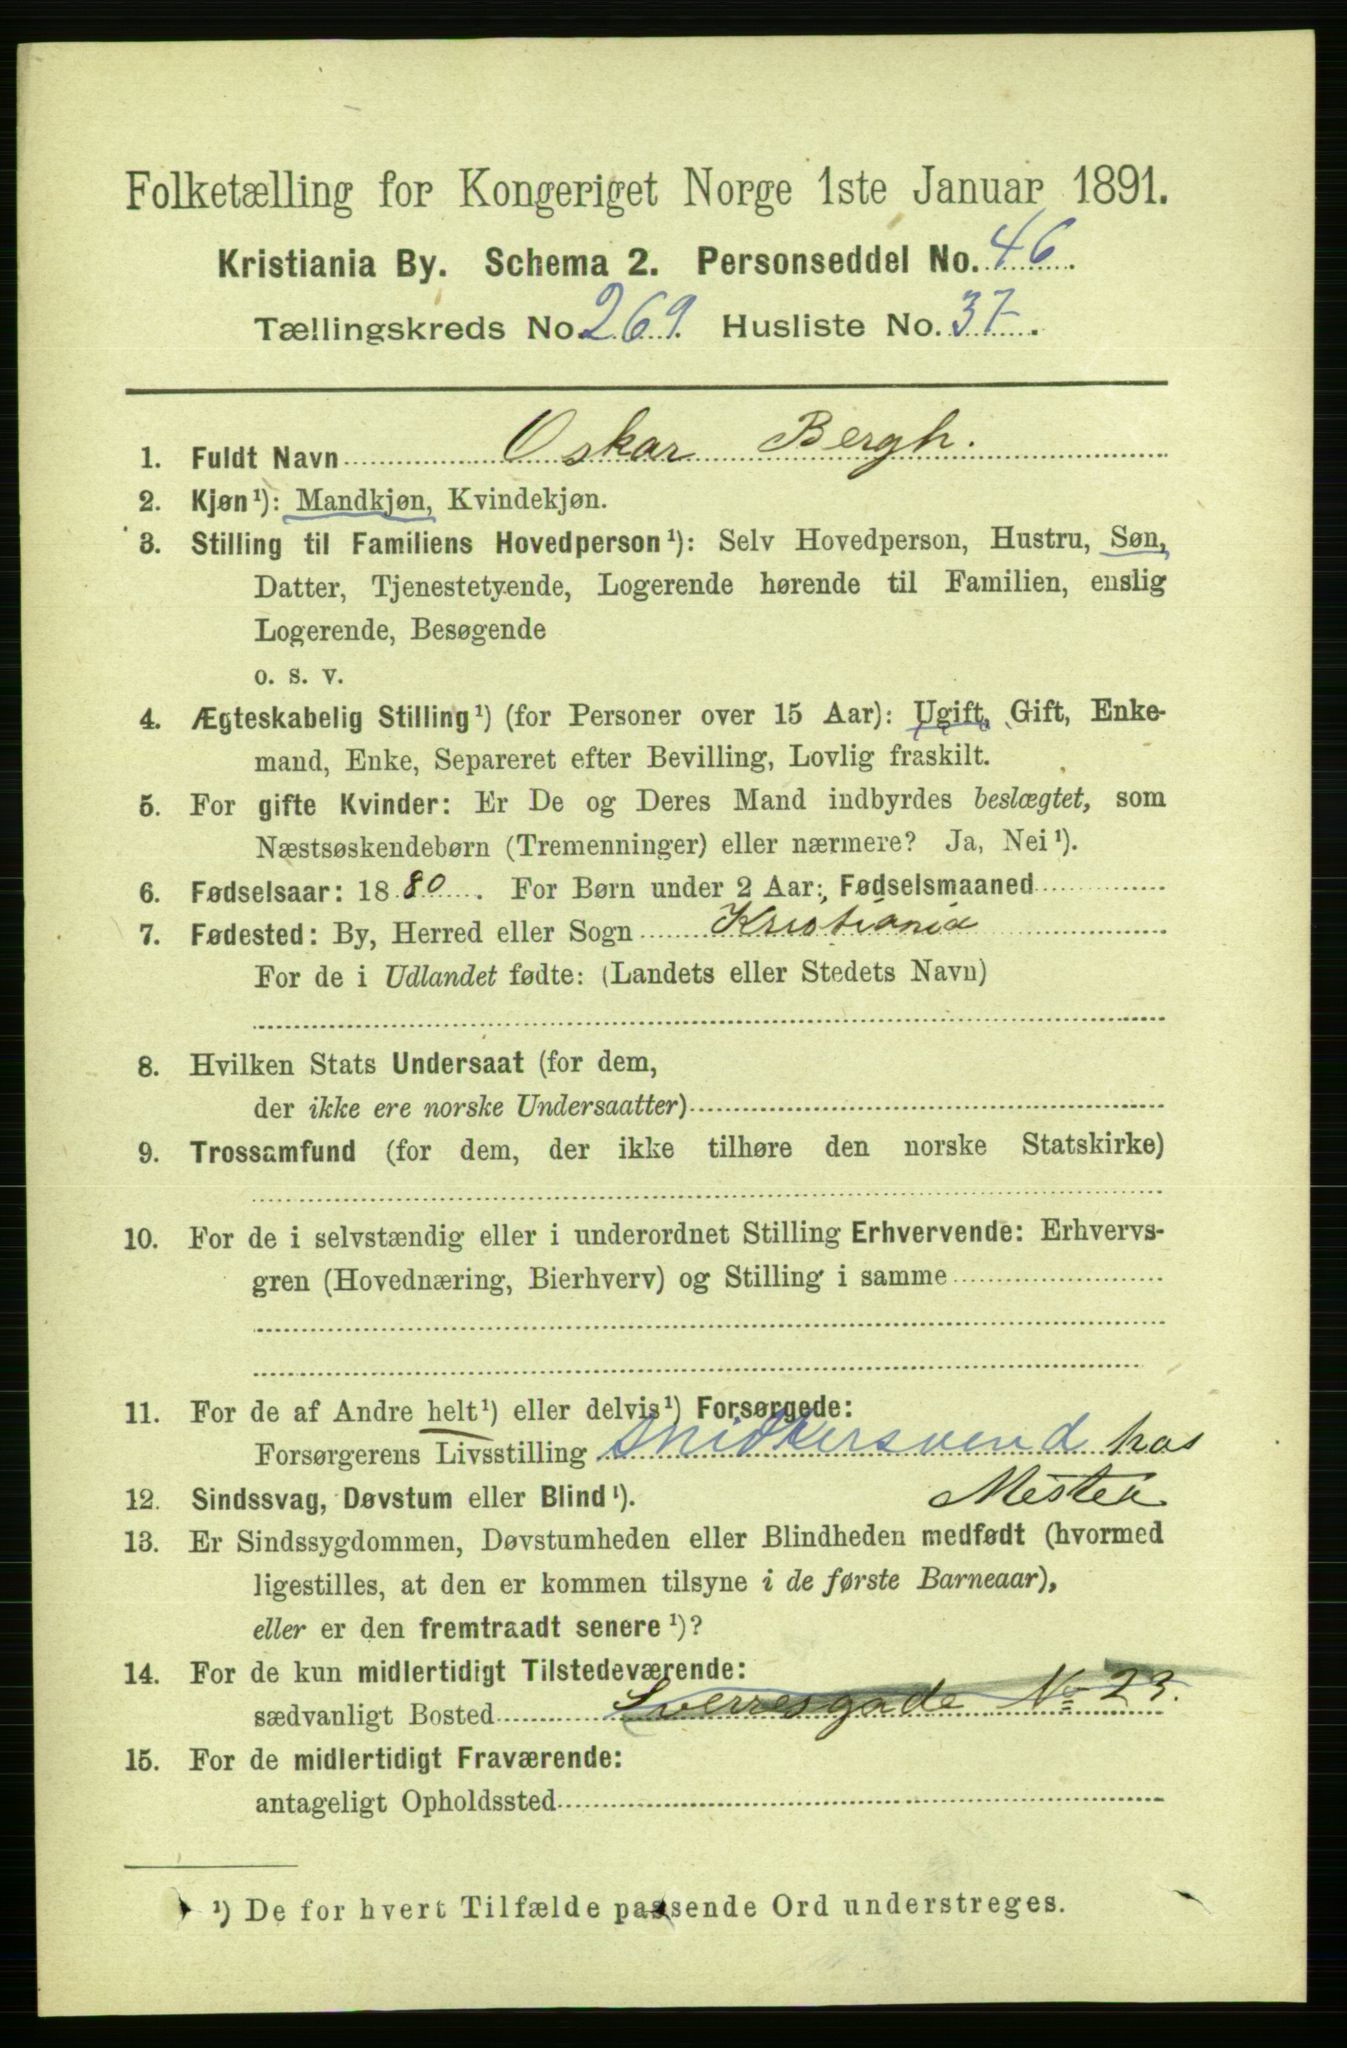 Folketælling for Kongeriget Norge 1ste Januar 1891.
Kristiania By. Schema 2. Personseddel No. 46.
Tællingskreds No. 269. Husliste No. 37.
1. Fuldt Navn Oskar Bergh.
2. Kjøn¹): Mandkjøn, Kvindekjøn.
3. Stilling til Familiens Hovedperson¹): Selv Hovedperson, Hustru, Søn,
Datter, Tjenestetyende, Logerende hørende til Familien, enslig
Logerende, Besøgende
o. s. v.
4. Ægteskabelig Stilling¹) (for Personer over 15 Aar): Ugift, Gift, Enke-
mand, Enke, Separeret efter Bevilling, Lovlig fraskilt.
5. For gifte Kvinder: Er De og Deres Mand indbyrdes beslægtet, som
Næstsøskendebørn (Tremenninger) eller nærmere? Ja, Nei¹).
6. Fødselsaar: 1880. For Børn under 2 Aar: Fødselsmaaned
7. Fødested: By, Herred eller Sogn Kristiania
For de i Udlandet fødte: (Landets eller Stedets Navn)
8. Hvilken Stats Undersaat (for dem,
der ikke ere norske Undersaatter)
9. Trossamfund (for dem, der ikke tilhøre den norske Statskirke)
10. For de i selvstændig eller i underordnet Stilling Erhvervende: Erhvervs-
gren (Hovednæring, Bierhverv) og Stilling i samme
11. For de af Andre helt¹) eller delvis¹) Forsørgede:
Forsørgerens Livsstilling Snidkersvend hos
Mester
12. Sindssvag, Døvstum eller Blind¹).
13. Er Sindssygdommen, Døvstumheden eller Blindheden medfødt (hvormed
ligestilles, at den er kommen tilsyne i de første Barneaar),
eller er den fremtraadt senere¹)?
14. For de kun midlertidigt Tilstedeværende:
sædvanligt Bosted Sverresgade No 23.
15. For de midlertidigt Fraværende:
antageligt Opholdssted
¹) De for hvert Tilfælde passende Ord understreges.